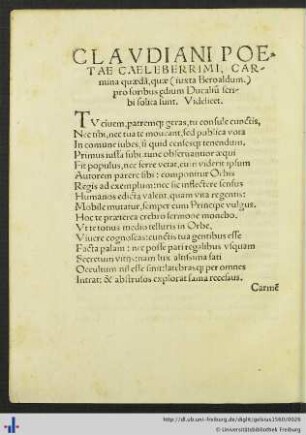 CLAVDIANI POE-
TAE CAELEBERRIMI, CAR-
mina quædā, quæ (iuxta Beroaldum)
pro foribus ędium Ducaliū scri-
bi solita sunt. Videlicet.
TV ciuem, patremqȝ geras, tu consule cunctis,
Nec tibi, nec tua te moueant, sed publica vota
In comune iubes, si quid censesqȝ tenendum,
Primus iussa subi: tunc obseruantior æqui
Fit populus, nec ferre vetat, cum viderit ipsum
Autorem parere tibi: componitur Orbis
Regis ad exemplum: nec sic inflectere sensus
Humanos edicta valent, quam vita regentis:
Mobile mutatur, semper cum Principe vulgus,
Hoc te præterea crebro sermone monebo,
Vt te totius medio telluris in Orbe,
Viuere cognoscas: cunctis tua gentibus esse
Facta palam: nec posse dari regalibus vsquam
Secretum vitijs: nam lux altissima fati
Occultum nil esse sinit: latebrasqȝ per omnes
Intrat: & abstrusos explorat fama recessus.
Carmē
http://dl.ub.uni-freiburg.de/diglit/geilour1580/0026
© Universitätsbibliothek Freiburg